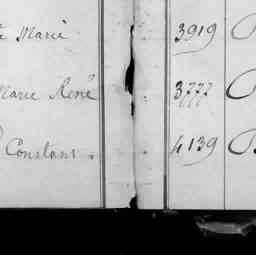 Marie 3919
Marie René 3777
Constant. 4139